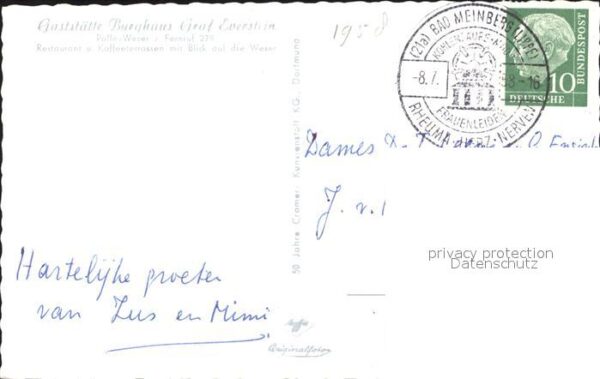 Gaststätte Burghaus Graf Everstein
Polle-Weser · Fernruf 279
Restaurant u. Kaffeeterrassen mit Blick auf die Weser
1958
(21a) BAD MEINBERG (LIPPE)
-8.7. 58-16
FRAUENLEIDEN
RHEUMA·HERZ·NERVEN
10
DEUTSCHE
BUNDESPOST
50 Jahre Cramers Kunstanstalt KG., Dortmund
Dames
J. v.
privacy protection
Datenschutz
Hartelijke groeten
van Zus en Mimi
Originalfoto